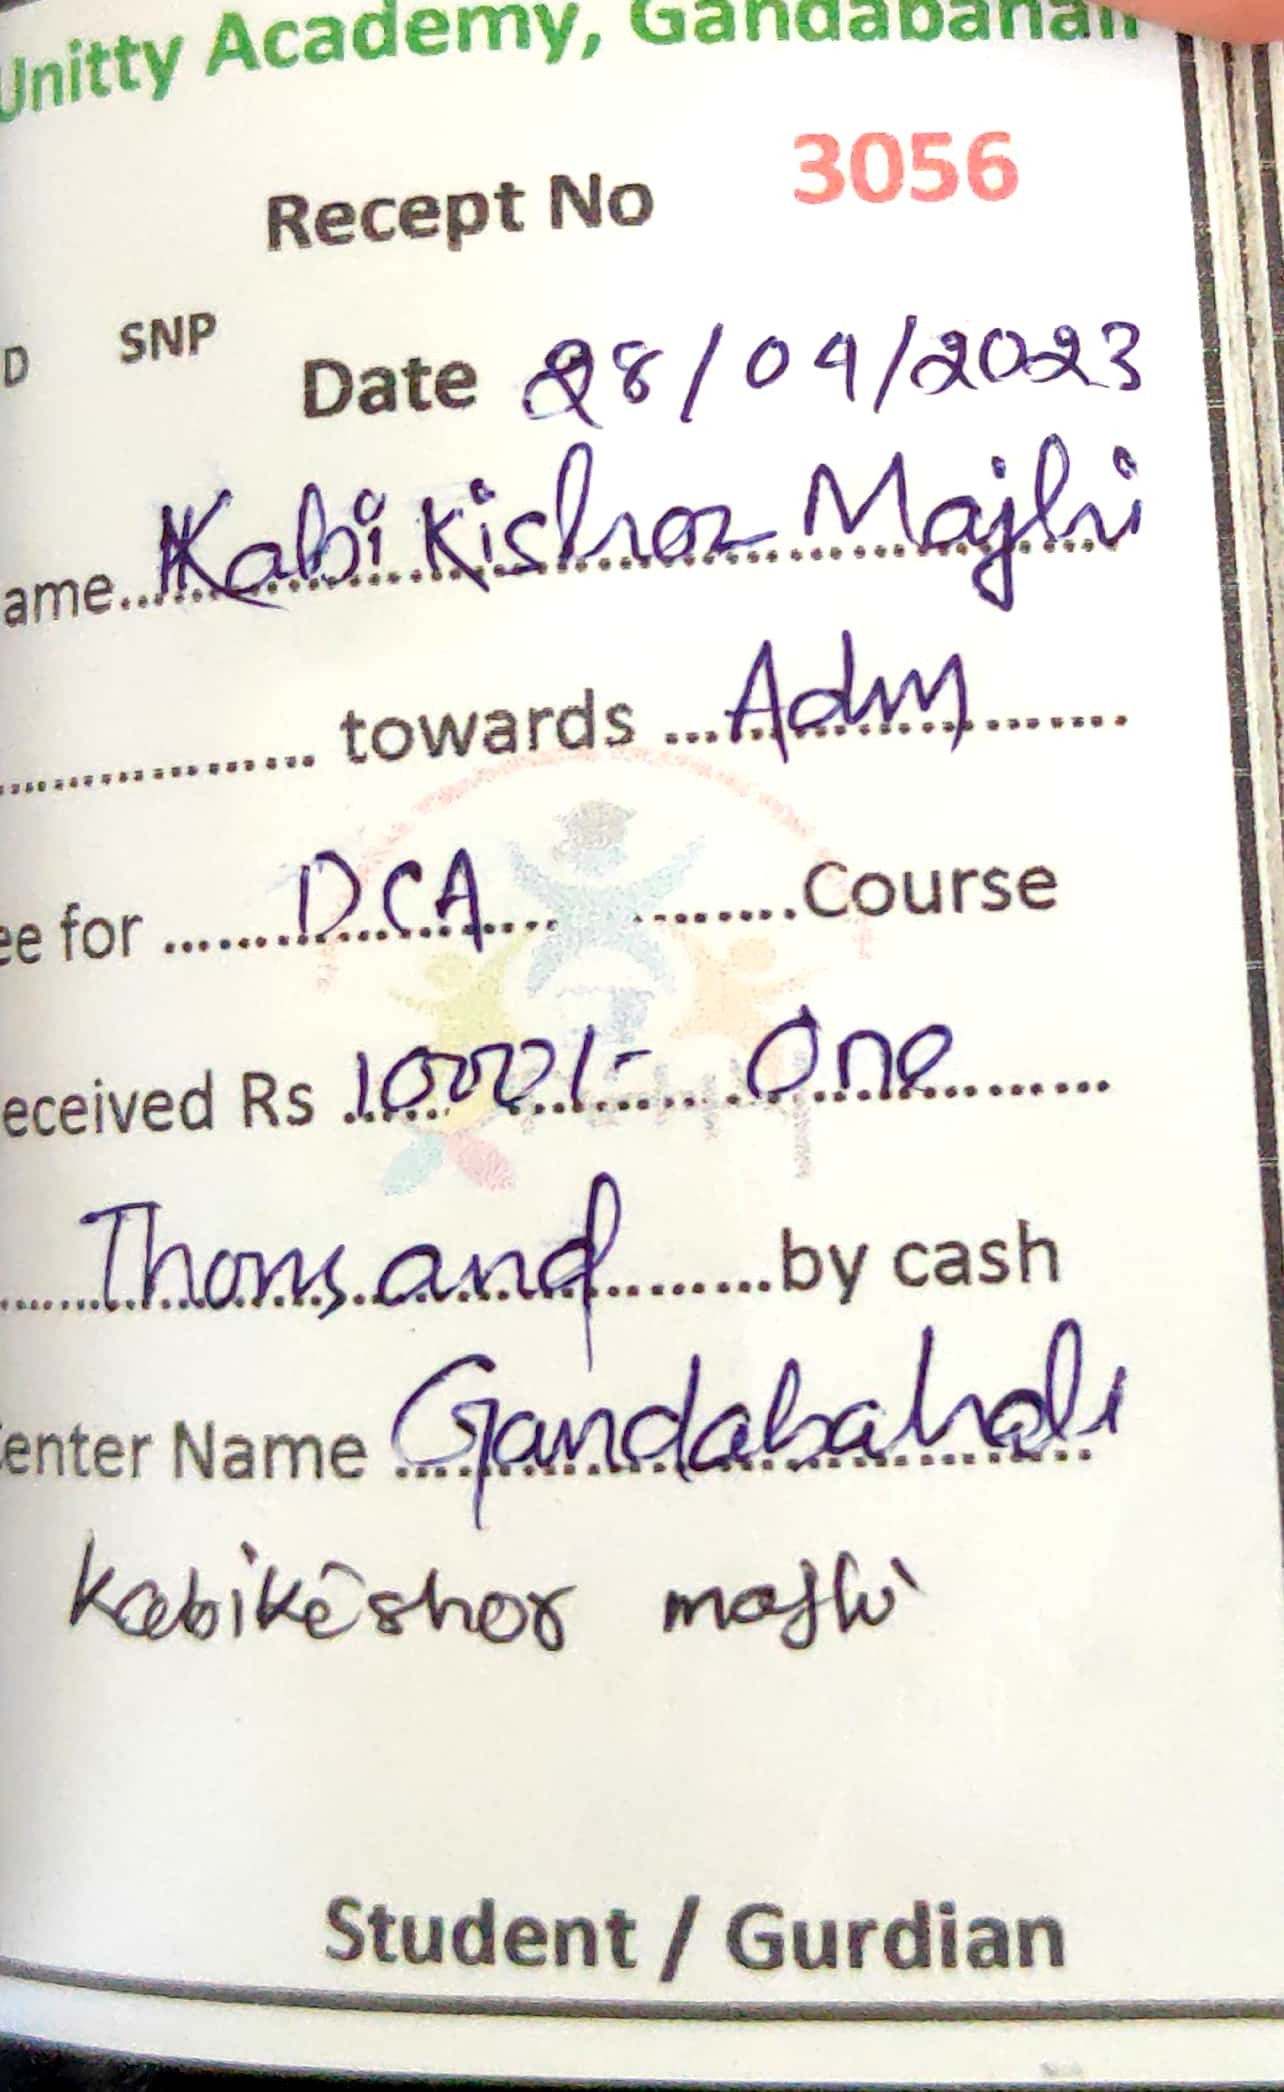 Unitty Academy, Gandabahali
Recept No 3056
D SNP
Date 28/04/2023
ame Kabi Kishor Majhi
towards Adm
ee for DCA Course
eceived Rs 1000/- One
Thousand by cash
enter Name Gandabahali
Kabikeshor majhi
Student / Gurdian